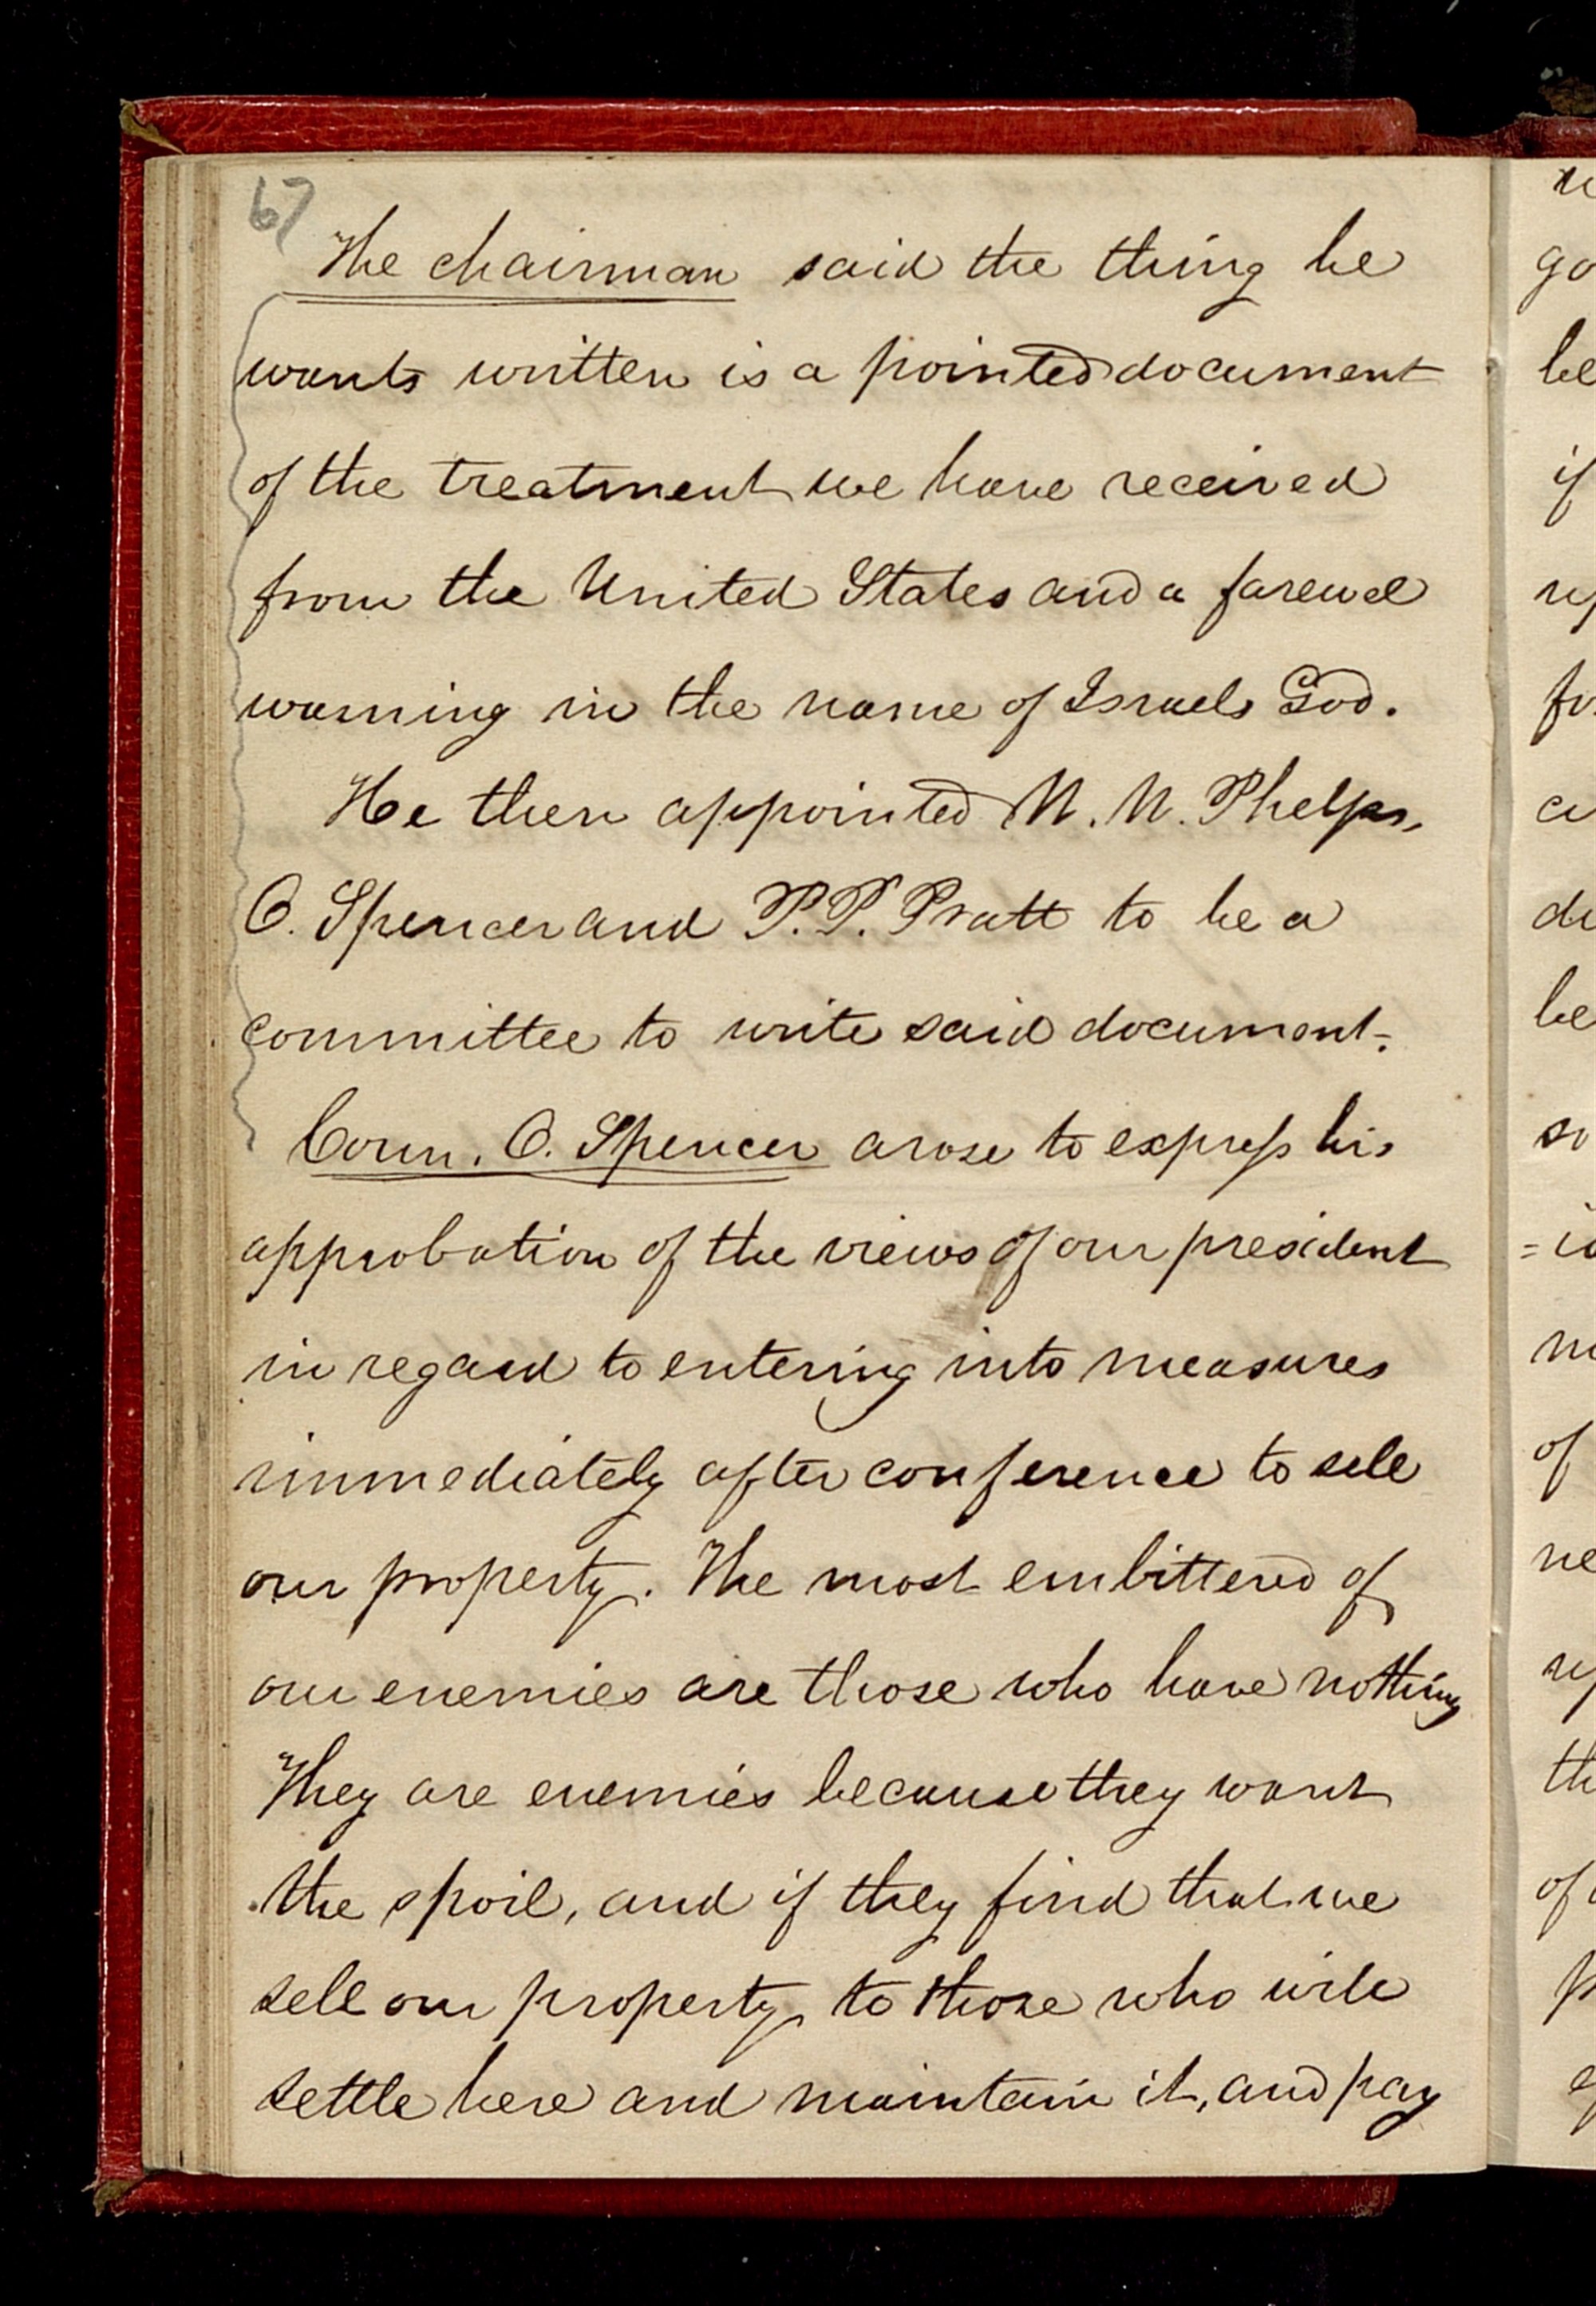 67
The chairman said the thing he
wants written is a pointed document
of the treatment we have received
from the United States and a farewel
warning in the name of Israels God.
He then appointed W. W. Phelps,
O. Spencer and P. P. Pratt to be a
committee to write said document.
Coun. O. Spencer arose to express his
approbation of the views of our president
in regard to entering into measures
immediately after conference to sell
our property. The most embittered of
our enemies are those who have nothing
They are enemies because they want
the spoil, and if they find that we
sell our property to those who will
settle here and maintain it, and pay